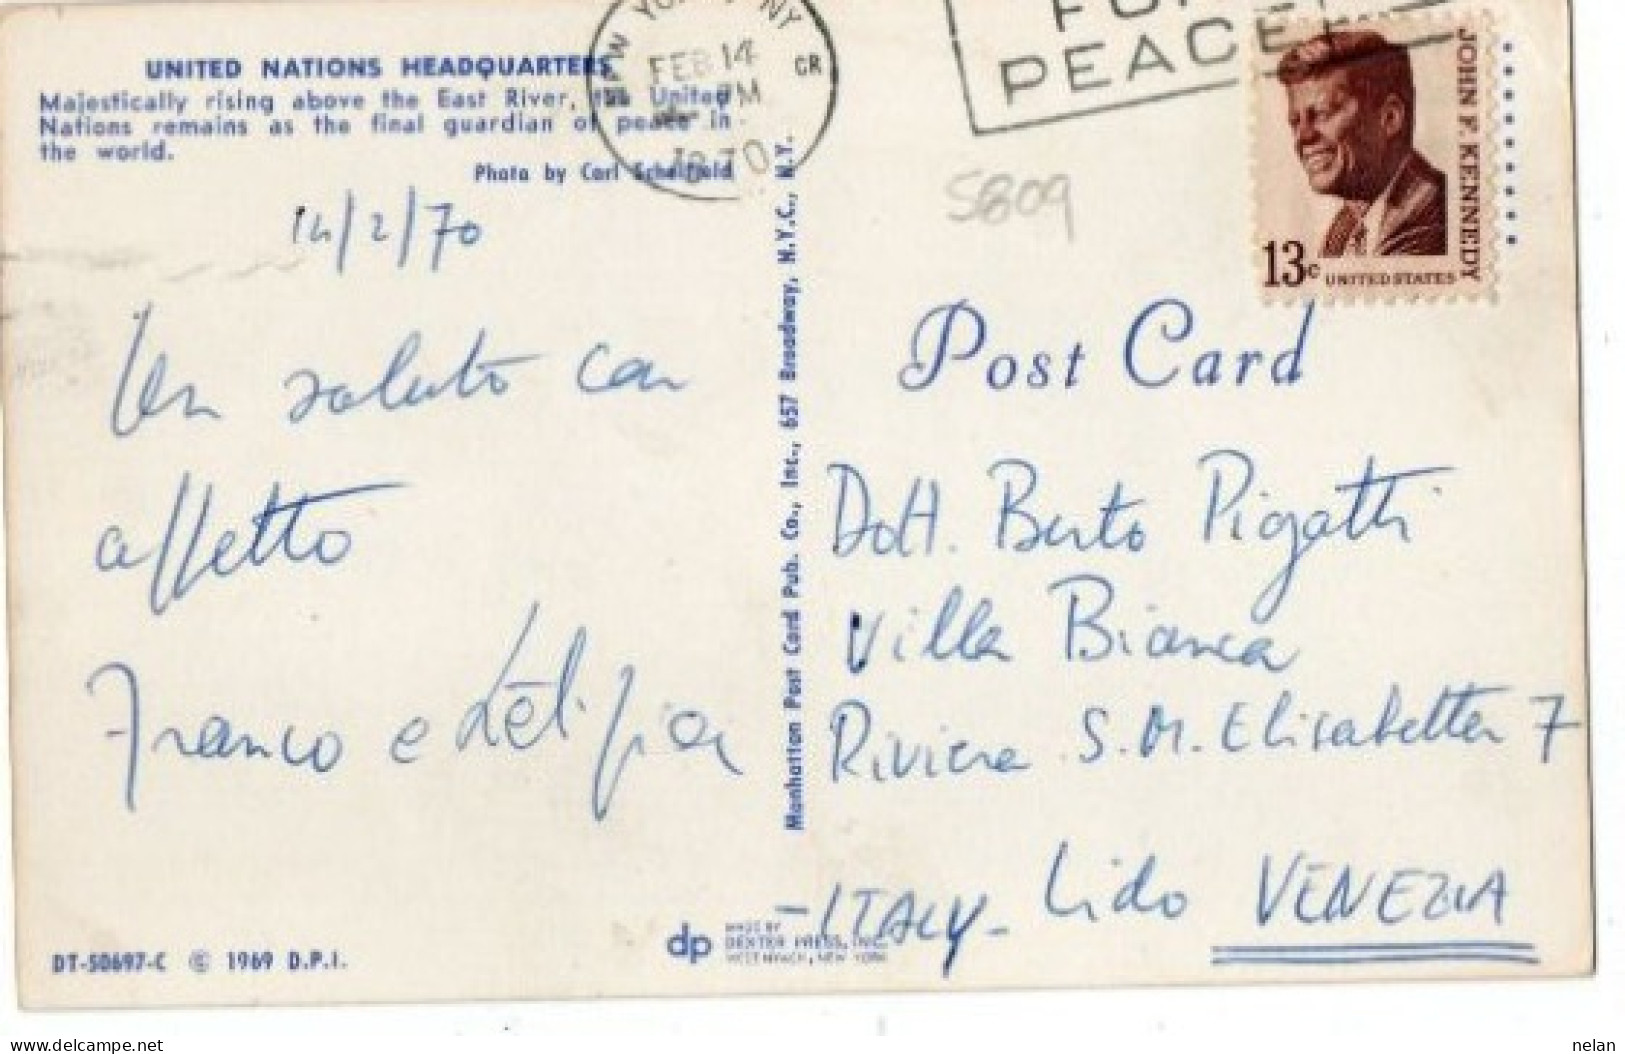 UNITED NATIONS HEADQUARTERS
Majestically rising above the East River, the United
Nations remains as the final guardian of peace in
the world.
Photo by Carl
14/2/70
Un saluto con
affetto
Franco e
DT-50697-C © 1969 D.P.I.
dp
MADE BY
DEXTER PRESS, INC.
WEST NYACK, NEW YORK
Manhattan Post Card Pub. Co., Inc., 657 Broadway, N.Y.C., N.Y.
NEW YORK, NY
FEB 14
PM
1970
GR
FOR
PEACE
5809
JOHN F. KENNEDY
13c
UNITED STATES
Post Card
Dott. Berto Pigatti
Villa Bianca
Riviera S.M. Elisabetta 7
Lido VENEZIA
-ITALY-
delcampe.net
nelan